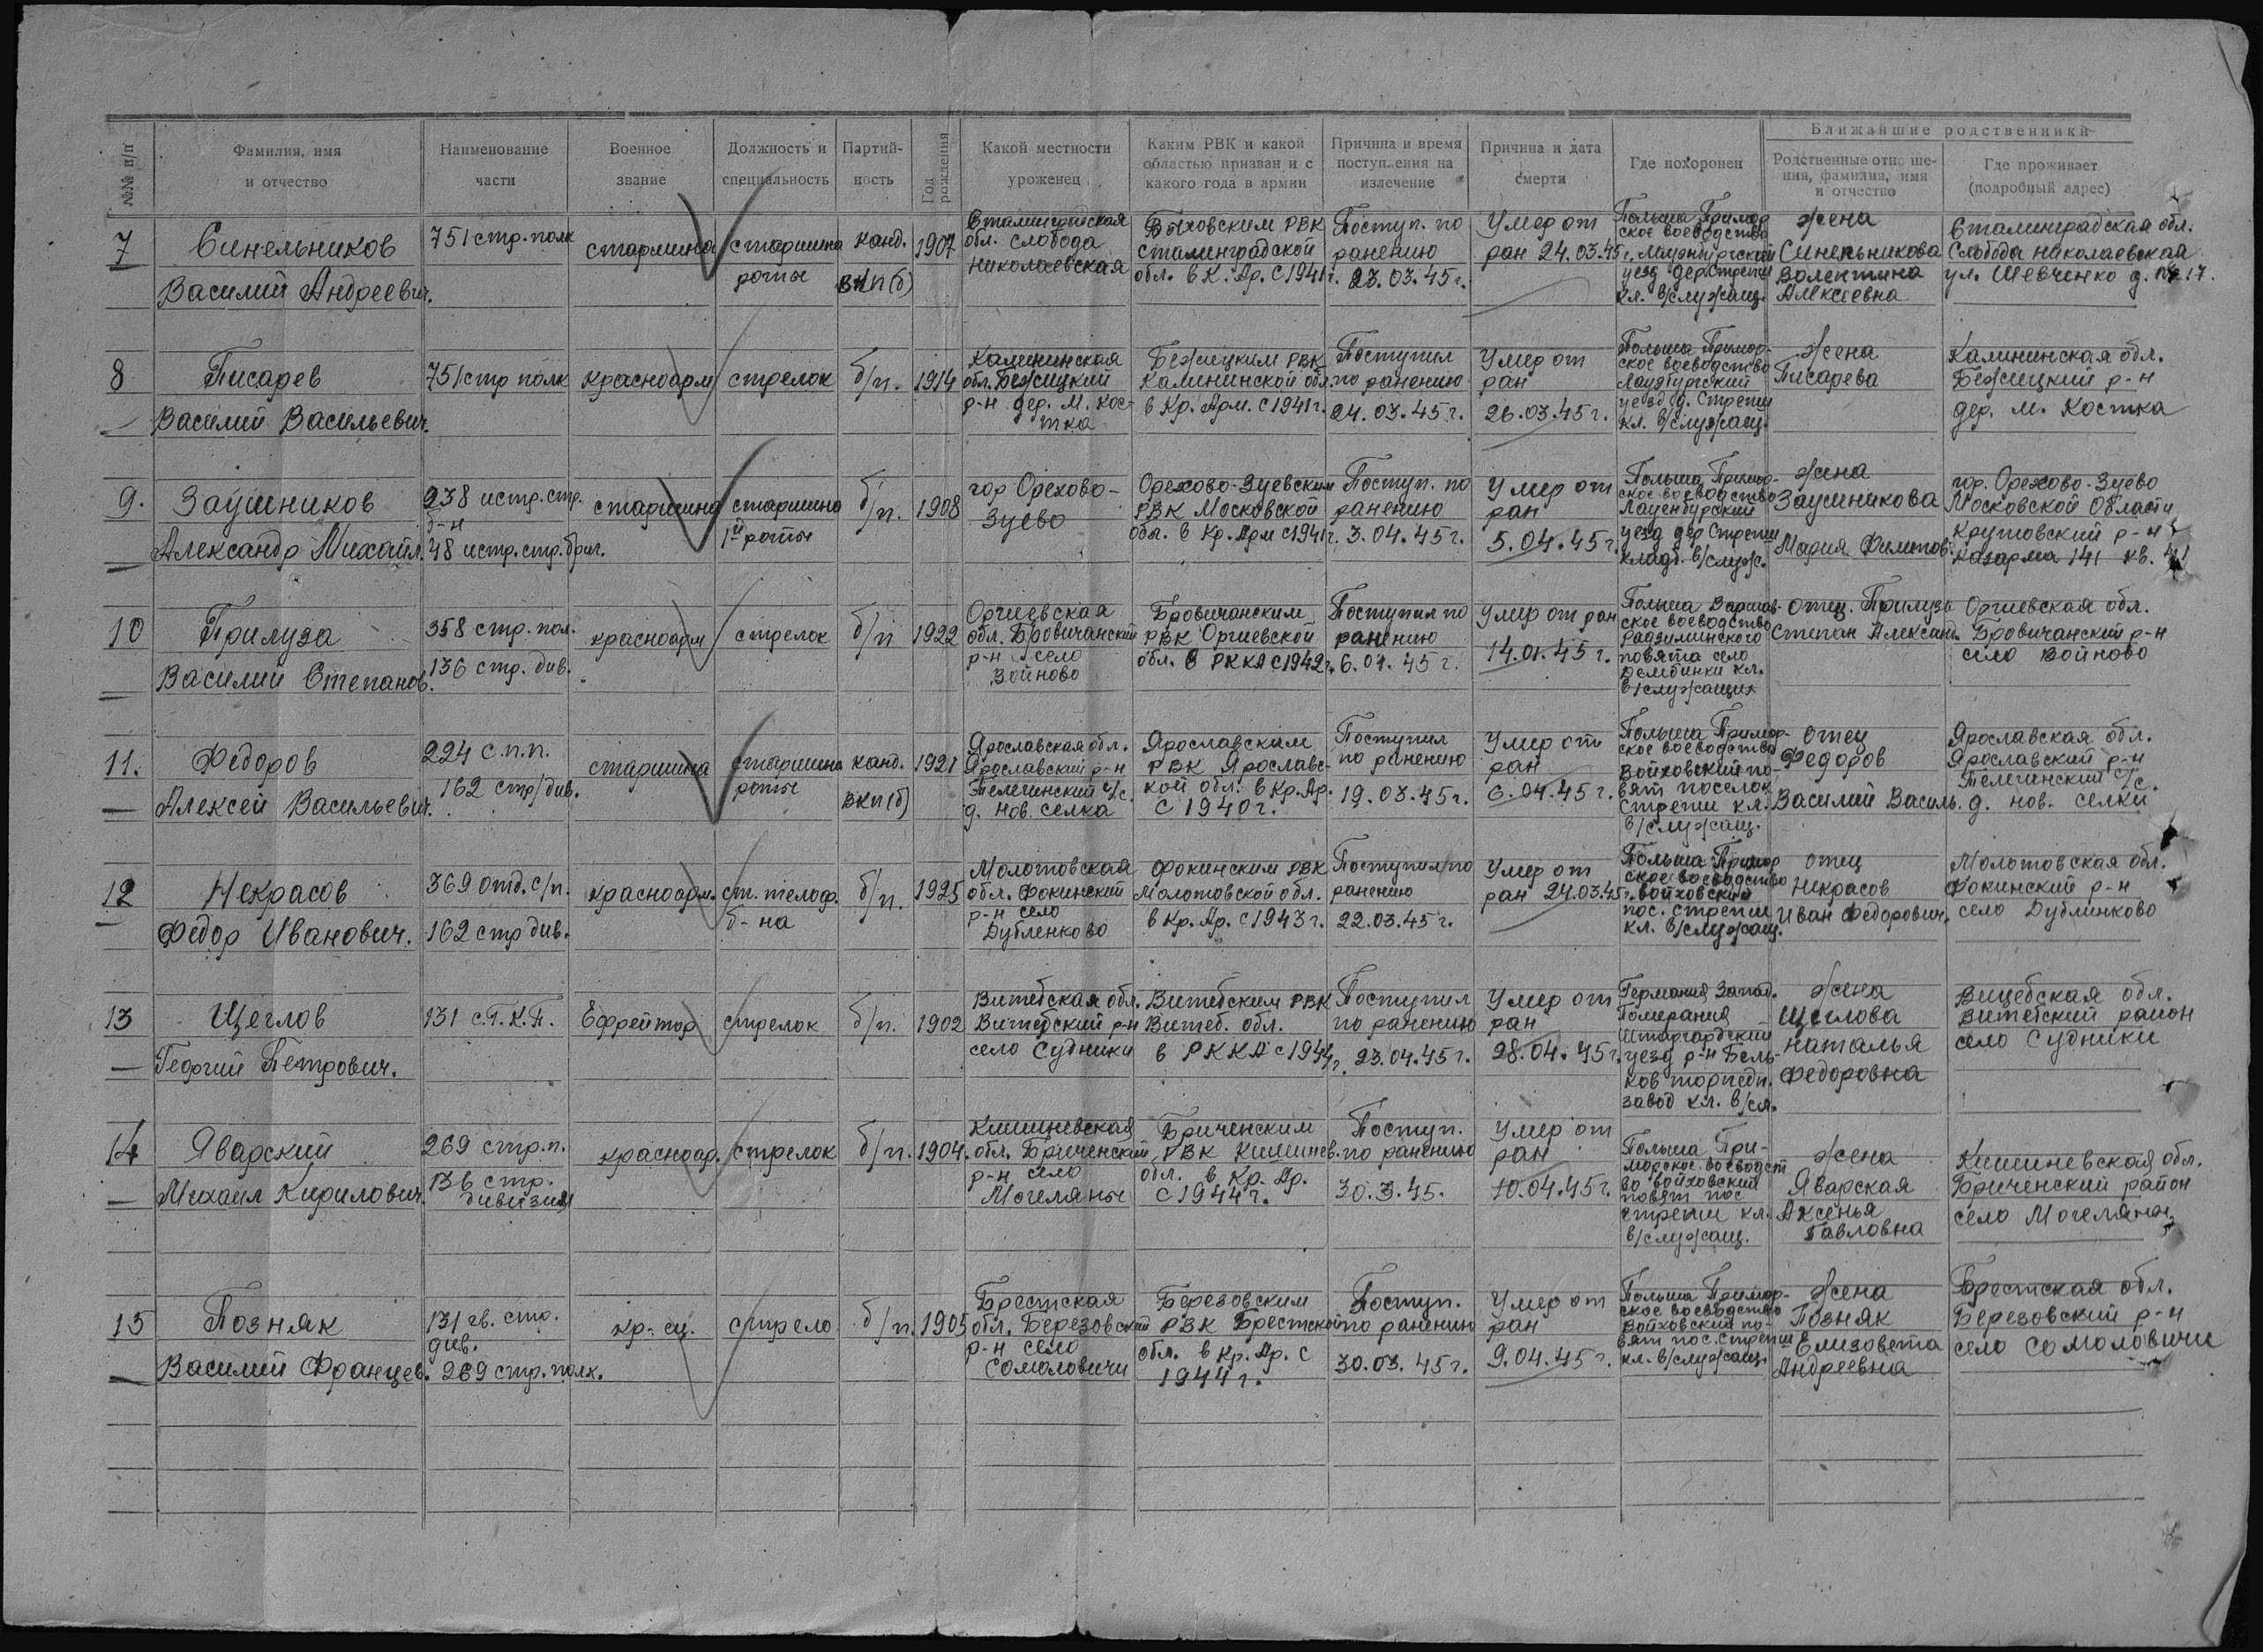 №№ п/п
Фамилия, имя
и отчество
Наименование
части
Военное
звание
Должность и
специальность
Партий-
ность
Год
рождения
Какой местности
уроженец
Каким РВК и какой
областью призван и с
какого года в армии
Причина и время
поступления на
излечение
Причина и дата
смерти
Где похоронен
Ближайшие родственники
Родственные отноше-
ния, фамилия, имя
и отчество
Где проживает
(подробный адрес)
7
Синельников
Василий Андреевич.
751 стр. полк
старшина
старшина
роты
канд.
ВКП(б)
1907
Сталинградская
обл. слобода
Николаевская
Быховским РВК
Сталинградской
обл. в К. Ар. с 1941 г.
Поступ. по
ранению
23.03.45 г.
Умер от
ран 24.03.45 г.
Польша Примор
ское воеводство
уезд дер. Стрепш
кл. в/служащ.
жена
Синельникова
Валентина
Алексеевна
Сталинградская обл.
Слобода Николаевская
ул. Шевченко д. № 17.
8
Писарев
Василий Васильевич.
751 стр полк
красноарм
стрелок
б/п.
1914
Калининская
обл. Бежицкий
р-н дер. М. Кос-
тка
Бежицким РВК
Калининской обл.
в Кр. Арм. с 1941 г.
Поступил
по ранению
24.03.45 г.
Умер от
ран
26.03.45 г.
Польша Примор-
ское воеводство
уезд д. Стрепш
кл. в/служащ.
жена
Писарева
Калининская обл.
Бежицкий р-н
дер. М. Костка
9.
Заушников
Александр Михайл.
238 истр. стр.
б-н
48 истр. стр. бриг.
старшина
старшина
1й роты
б/п.
1908
гор Орехово-
Зуево
Орехово-Зуевским
РВК Московской
обл. в Кр. Арм с 1941 г.
Поступ. по
ранению
3.04.45 г.
Умер от
ран
5.04.45 г.
Польша Примор-
ское воеводство
Лауенбургский
уезд дер Стрепш
кладб. в/служ.
жена
Заушникова
Мария Филипов.
гор. Орехово-Зуево
Московской Области
Крутовский р-н
казарма 141 кв.
10
Прилуза
Василий Степанов.
358 стр. пол.
136 стр. див.
красноарм
стрелок
б/п
1922
обл. Бровичанский
р-н село
Войново
Бровичанским
РВК
обл. в РККА с 1942 г.
Поступил по
ранению
6.01.45 г.
Умер от ран
14.01.45 г.
Польша Варшав-
ское воеводство
Радзиминского
повята село
Дембинки кл.
в/служащих
отец. Прилуза
Степан Александ.
обл.
Бровичанский р-н
село Войново
11.
Федоров
Алексей Васильевич.
224 с.п.п.
162 стр/див.
старшина
старшина
роты
канд.
ВКП(б)
1921
Ярославская обл.
Ярославский р-н
Телегинский с/с.
д. Нов. селка
Ярославским
РВК Ярославс-
кой обл. в Кр. Ар.
с 1940 г.
Поступил
по ранению
19.03.45 г.
Умер от
ран
6.04.45 г.
Польша Примор-
ское воеводство
Войховский по-
вят поселок
Стрепш кл.
в/служащ.
отец
Федоров
Василий Василь.
Ярославская обл.
Ярославский р-н
Телегинский с/с.
д. Нов. селки
12
Некрасов
Федор Иванович.
369 отд. с/п.
162 стр див.
красноарм.
ст. телеф.
б-на
б/п.
1925
Молотовская
обл. Фокинский
р-н село
Дубленково
Фокинским РВК
Молотовской обл.
в Кр. Ар. с 1943 г.
Поступил по
ранению
22.03.45 г.
Умер от
ран 24.03.45 г.
Польша Примор
ское воеводство
Войховский
пос. Стрепш
кл. в/служащ.
отец
Некрасов
Иван Федорович.
Молотовская обл.
Фокинский р-н
село Дублинково
13
Щеглов
Георгий Петрович.
131 с.Г.К.П.
Ефрейтор
стрелок
б/п.
1902
Витебская обл.
Витебский р-н
село Судники
Витебским РВК
Витеб. обл.
в РККА с 1944 г.
Поступил
по ранению
23.04.45 г.
Умер от
ран
28.04.45 г.
Германия Запад.
Померания
Штаргардский
уезд р-н Бель-
ков торпедн.
завод кл. в/сл.
жена
Щеглова
Наталья
Федоровна
Вицебская обл.
Витебский район
село Судники
14
Яварский
Михаил Кирилович.
269 стр. п.
136 стр.
дивизия
красноар.
стрелок
б/п.
1904
Кишиневская
обл. Бриченский
р-н село
Могеляны
Бриченским
РВК Кишинев.
обл. в Кр. Ар.
с 1944 г.
Поступ.
по ранению
30.3.45.
Умер от
ран
10.04.45 г.
Польша При-
морское воеводст
во Войховский
повят пос
Стрепш кл.
в/служащ.
жена
Яварская
Аксенья
Павловна
Кишиневская обл.
Бриченский район
село Могеляны
15
Позняк
Василий Францев.
131 гв. стр.
див.
269 стр. полк.
кр-ец.
стрело
б/п.
1905
Брестская
обл. Березовский
р-н село
Сомоловичи
Березовским
РВК Брестской
обл. в Кр. Ар. с
1944 г.
Поступ.
по ранению
30.03.45 г.
Умер от
ран
9.04.45 г.
Польша Примор-
ское воеводство
Войховский по-
вят пос. Стрепш
кл. в/служащ.
жена
Позняк
Елизовета
Андреевна
Брестская обл.
Березовский р-н
село Сомоловичи